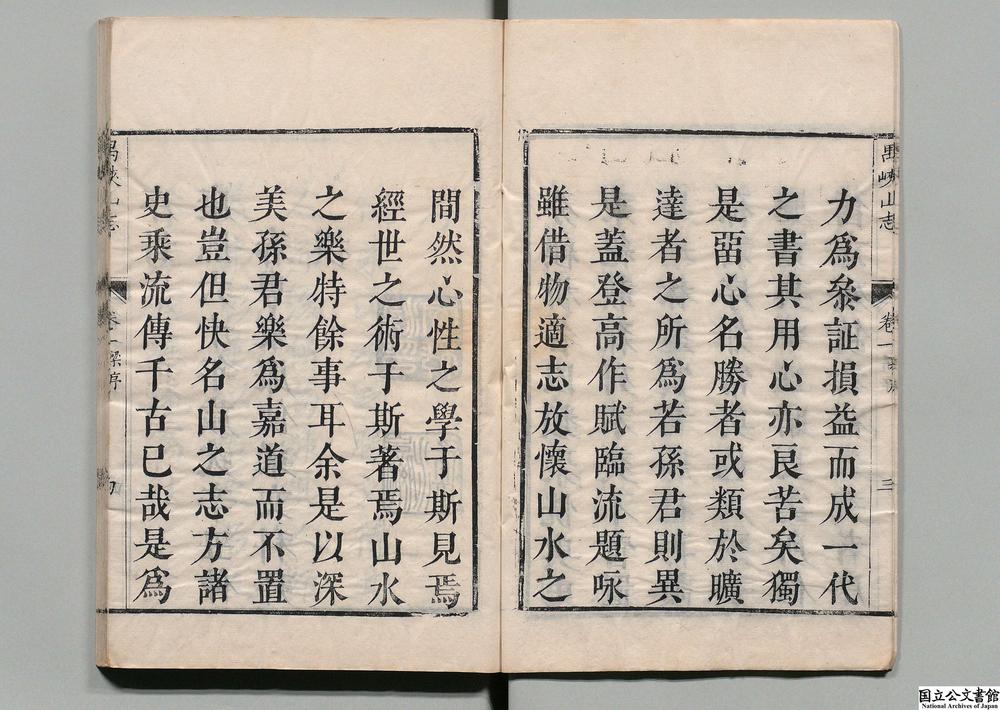 禺峽山志
卷一
三
力爲叅証損益而成一代
之書其用心亦良苦矣獨
是畱心名勝者或類於曠
達者之所爲若孫君則異
是蓋登高作賦臨流題咏
雖借物適志放懷山水之
間然心性之學于斯見焉
經世之術于斯著焉山水
之樂特餘事耳余是以深
美孫君樂爲嘉道而不置
也豈但快名山之志方諸
史乘流傳千古已哉是爲
禺峽山志
卷一梁序
国立公文書館
National Archives of Japan